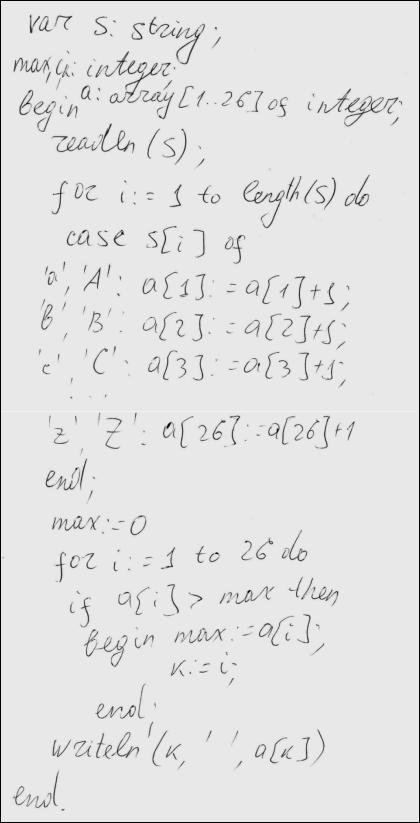 var s: string;
max, i, k: integer;
a: array[1..26] of integer;
begin
readln(s);
for i:=1 to length(s) do
case s[i] of
'a', 'A': a[1]:=a[1]+1;
'b', 'B': a[2]:=a[2]+1;
'c', 'C': a[3]:=a[3]+1;
...
'z', 'Z': a[26]:=a[26]+1
end;
max:=0
for i:=1 to 26 do
if a[i]> max then
begin max:=a[i];
k:=i;
end;
writeln(k, ' ', a[k])
end.